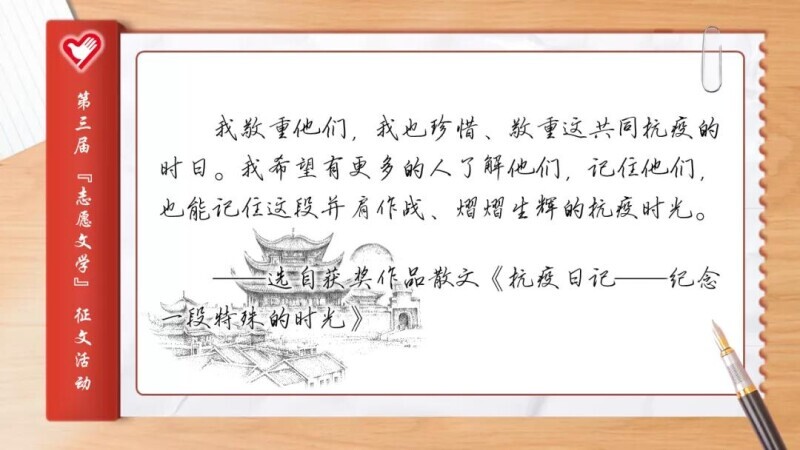 第三届『志愿文学』征文活动
我敬重他们，我也珍惜、敬重这共同抗疫的
时日。我希望有更多的人了解他们，记住他们，
也能记住这段并肩作战、熠熠生辉的抗疫时光。
——选自获奖作品散文《抗疫日记——纪念
一段特殊的时光》